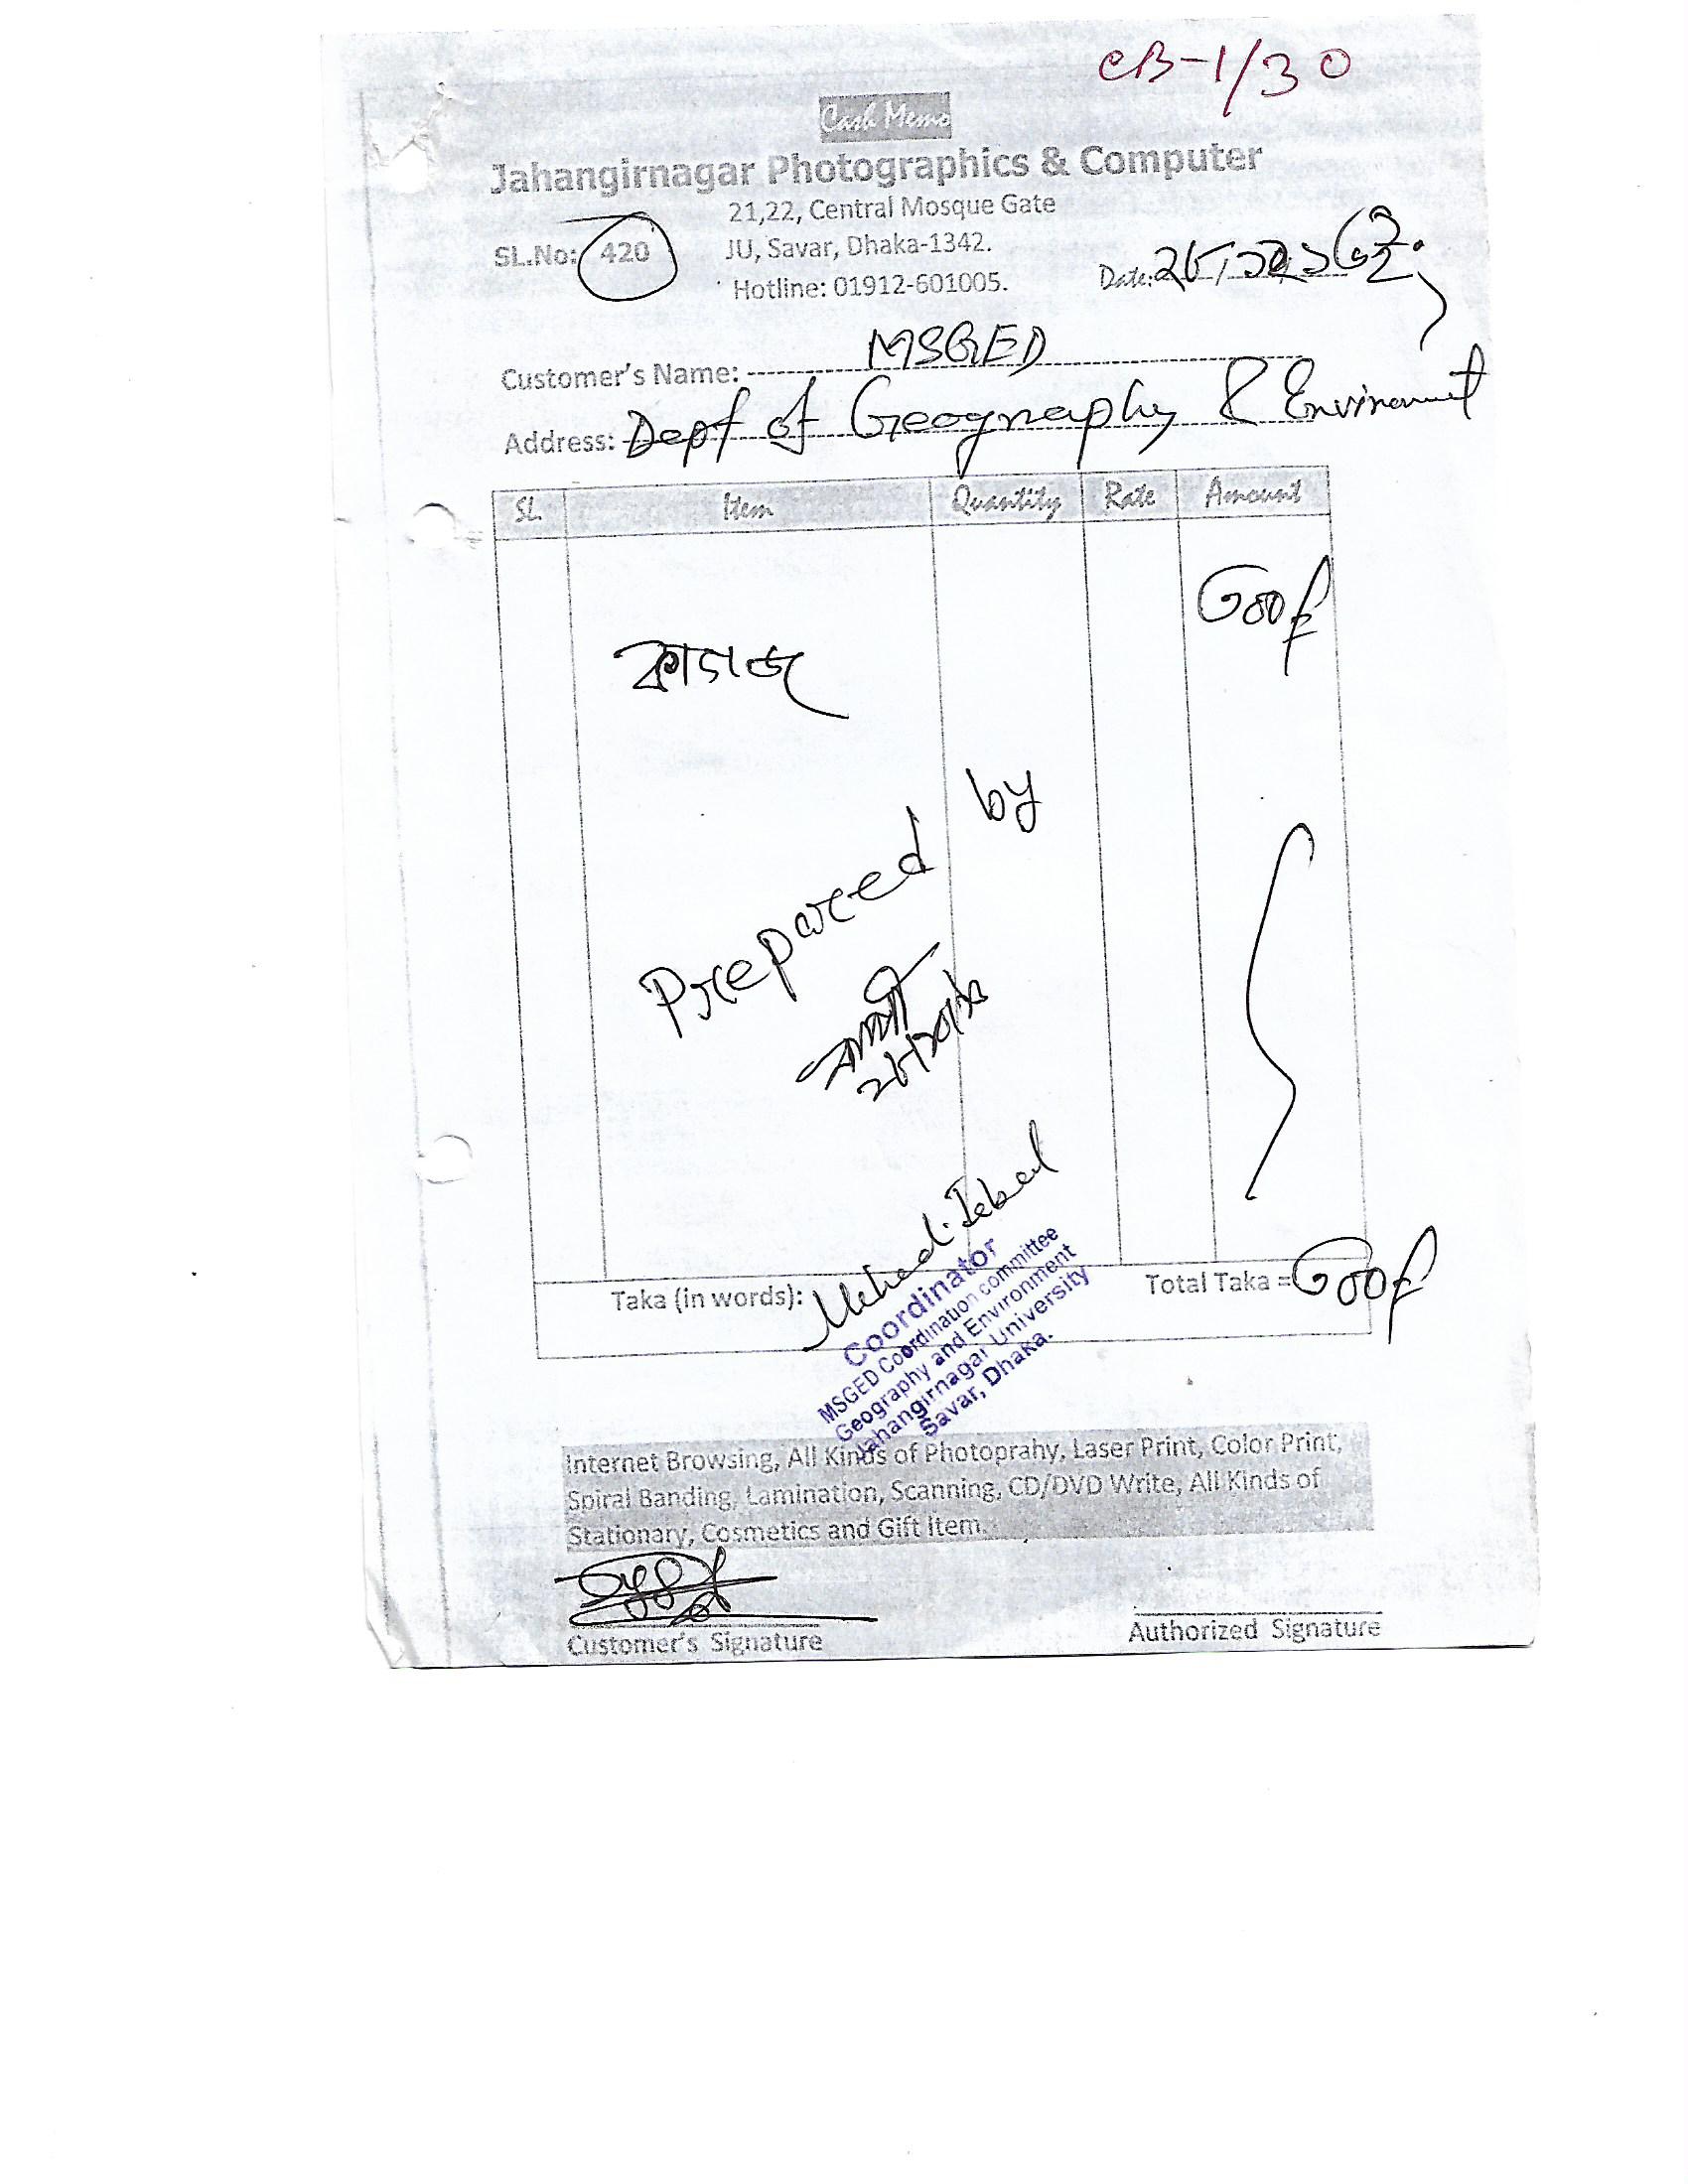 CB-1/30
Cash Memo
Jahangirnagar Photographics & Computer
21,22, Central Mosque Gate
SL.No: 420
JU, Savar, Dhaka-1342.
Hotline: 01912-601005.
Date:
Customer's Name: MSGED
Address: Dept of Geography & Environment
SL. Item Quantity Rate Amount
৩০০/-
কাগজ
Prepared by
Mehedi Iqbal
Taka (in words):
Total Taka = ৩০০/-
Coordinator
MSGED Coordination committee
Geography and Environment
Jahangirnagar University
Savar, Dhaka.
Internet Browsing, All Kinds of Photoprahy, Laser Print, Color Print,
Spiral Banding, Lamination, Scanning, CD/DVD Write, All Kinds of
Stationary, Cosmetics and Gift Item.
Customer's Signature
Authorized Signature